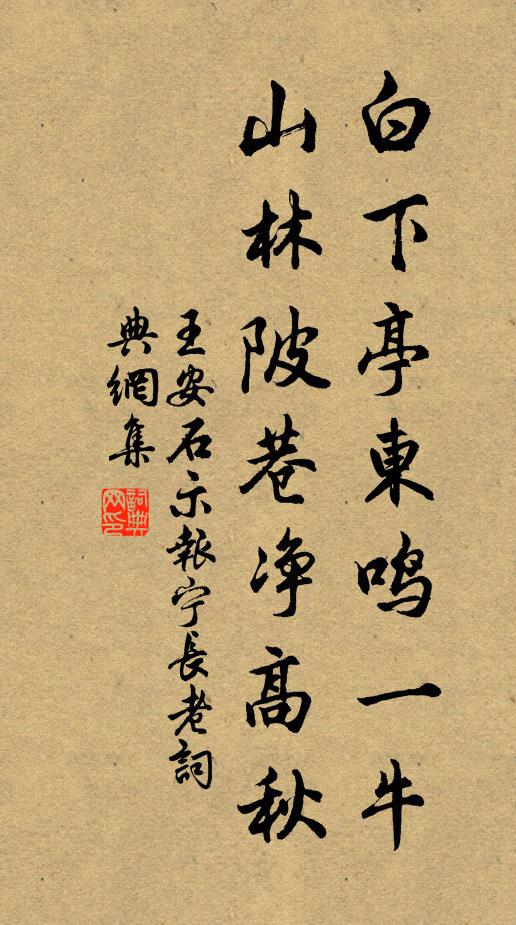 白下亭東鳴一牛
山林陂巷净高秋
王安石示報宁長老詞
典網集
詞典
网印